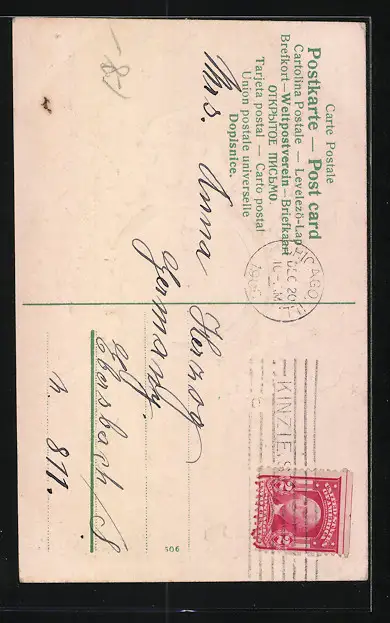 Carte Postale
Postkarte — Post card
Cartolina Postale — Levelezö-Lap
Brefkort—Weltpostverein—Briefkaart
ОТКРЫТОЕ ПИСЬМО.
Tarjeta postal — Carto postal
Union postale universelle
Dopisnice.
CHICAGO, ILL
DEC 20
10 - M
1905
KINZIE S
-8/
Mrs. Anna Herzog
Germany.
Ebersbach /S
N. 811.
506
2 2